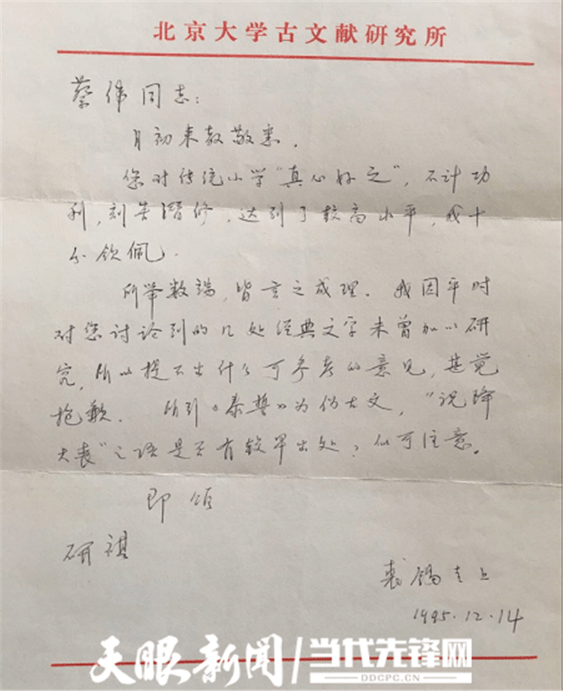 北京大学古文献研究所
蔡伟同志：
月初来教敬悉。
您对传统小学“真心好之”，不计功
利，刻苦潜修，达到了较高水平，我十
分钦佩。
所举数端，皆言之成理。我因平时
对您讨论到的几处经典文字未曾加以研
究，所以提不出什么可参考的意见，甚觉
抱歉。所引《泰誓》为伪古文，“祝降
大丧”之语是否有较早出处，似可注意。
即颂
研祺
裘锡圭上
1995.12.14
天眼新闻 当代先锋网
DDCPC.CN